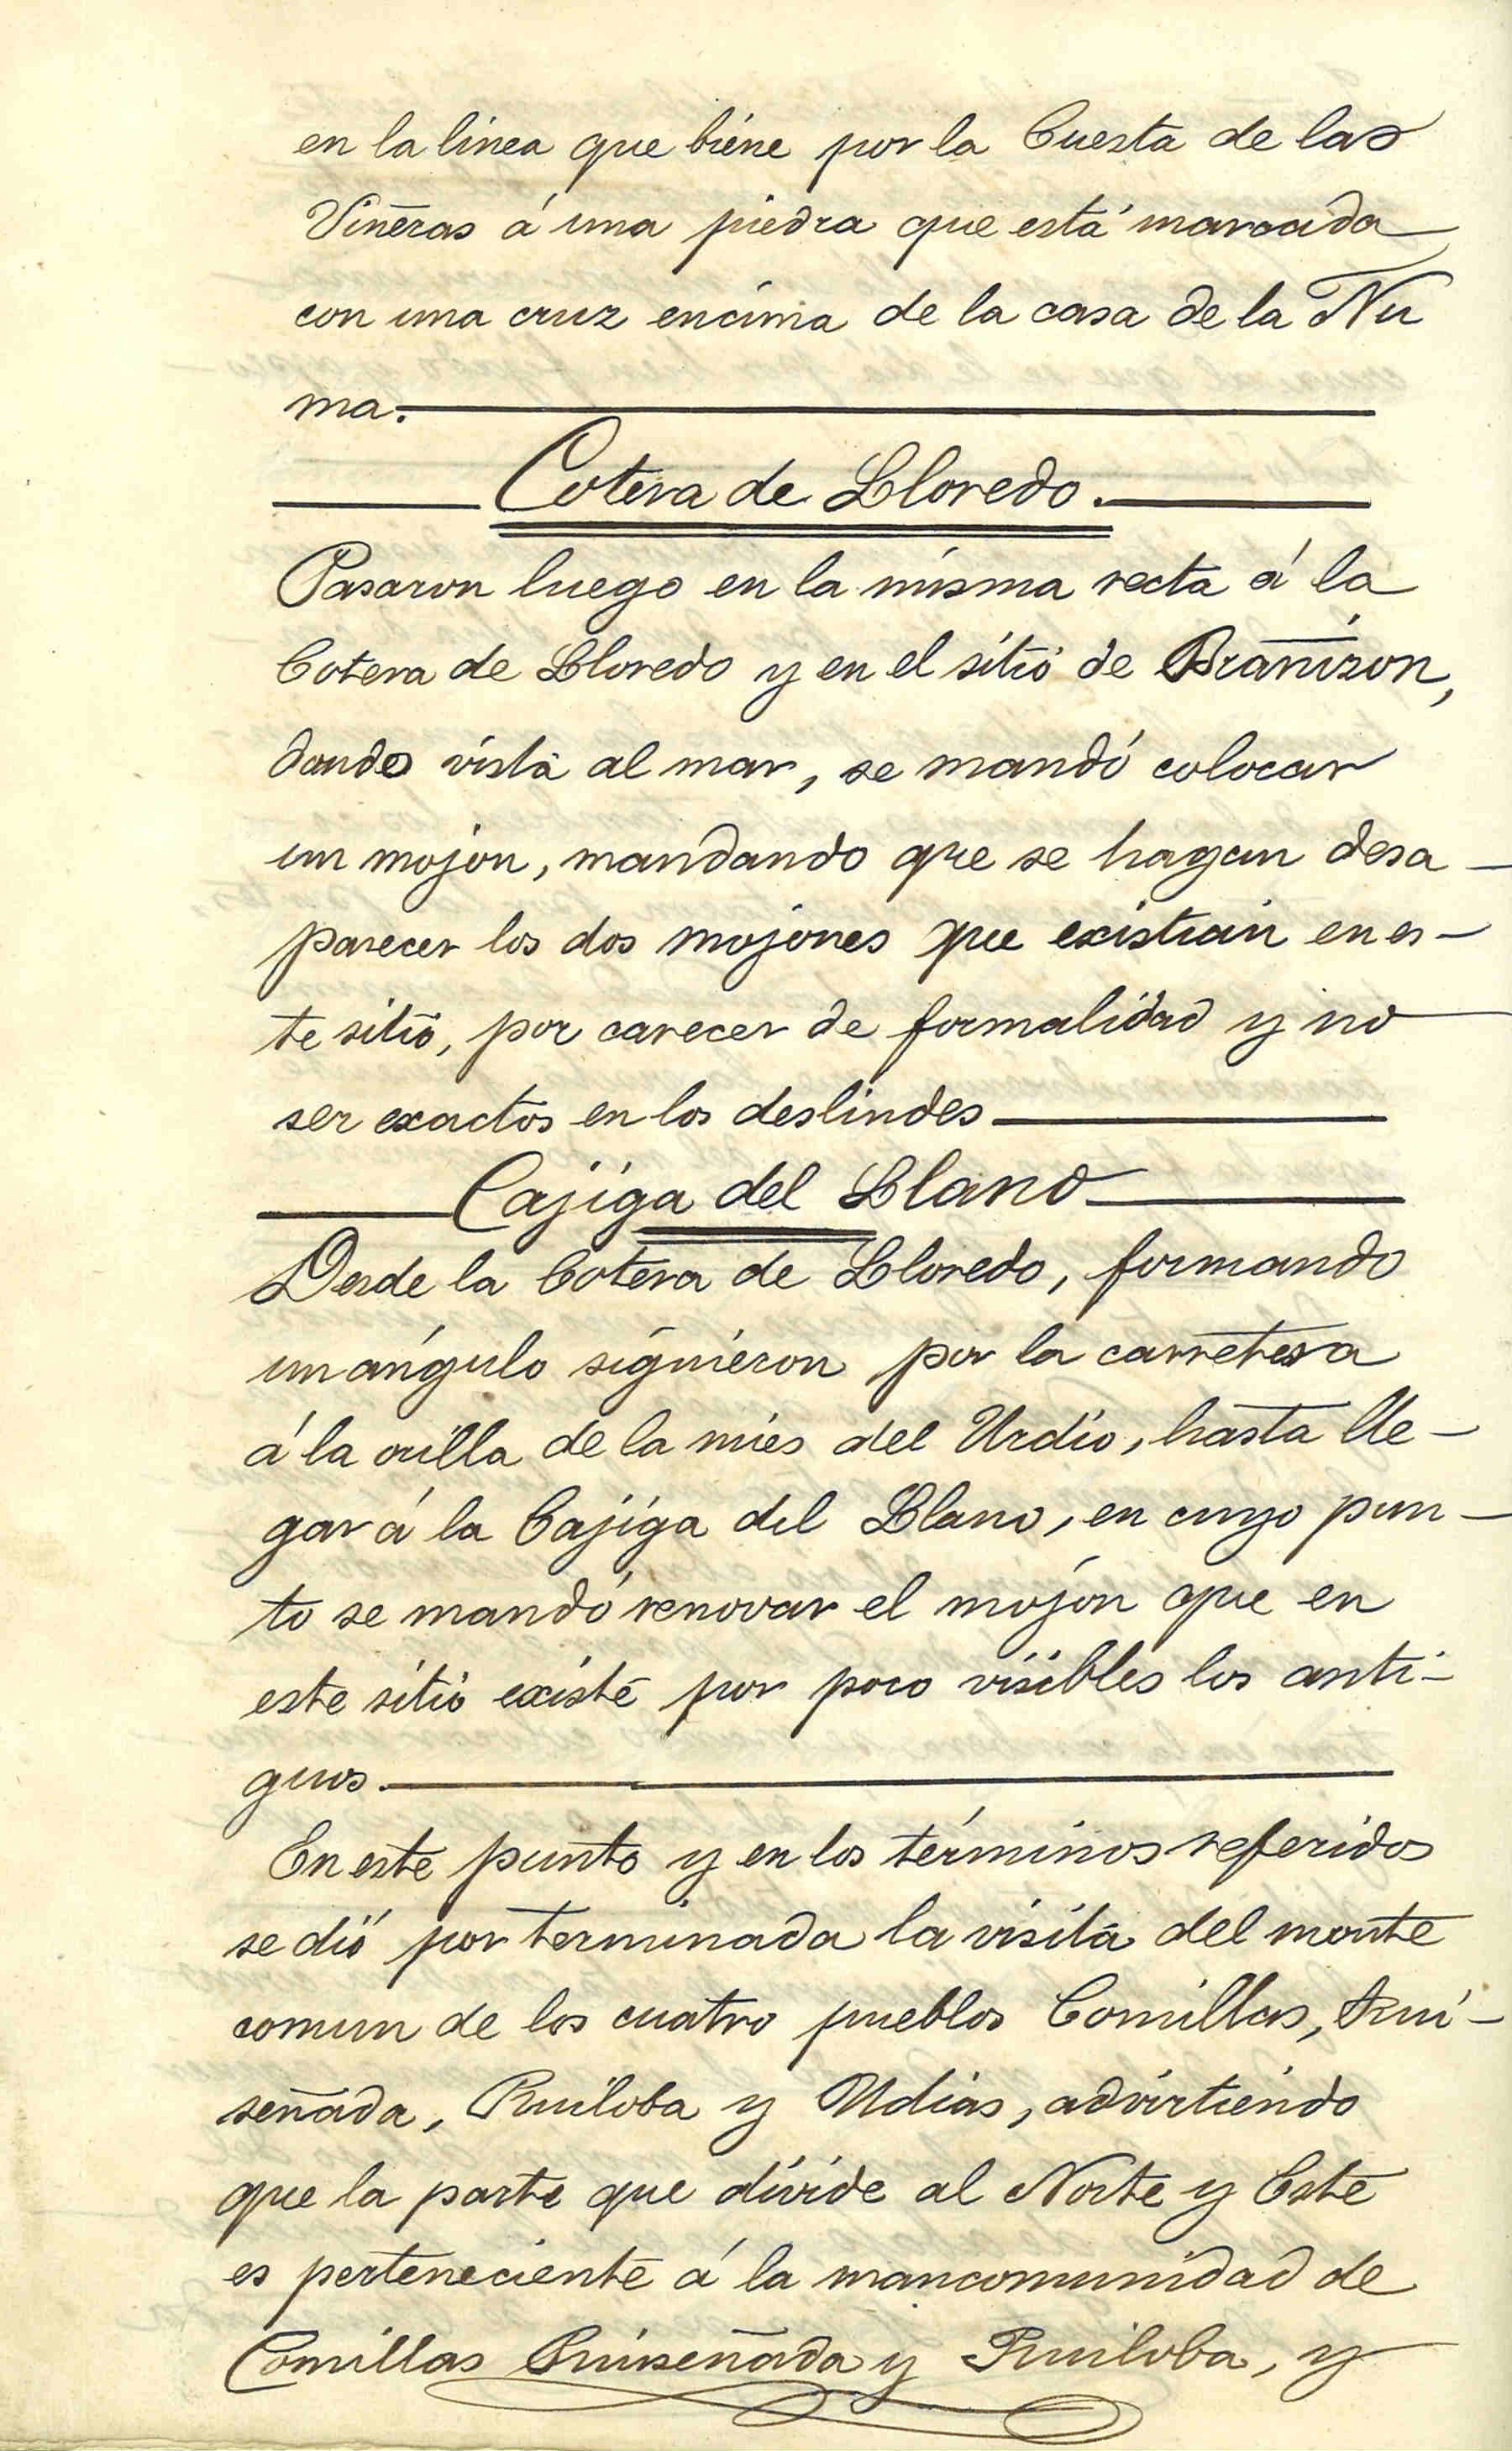 en la linea que biene por la Cuesta de las
Viñeras á una piedra que está marcada
con una cruz encima de la casa de la Nu
ma.
Cotera de Lloredo.
Pasaron luego en la misma recta á la
Cotera de Lloredo y en el sitio de Brañizon,
donde vista al mar, se mandó colocar
un mojon, mandando que se hagan desa-
parecer los dos mojones que existian en es-
te sitio, por carecer de formalidad y no
ser exactos en los deslindes
Cajiga del Llano
Desde la Cotera de Lloredo, formando
un angulo siguieron por la carretera
á la orilla de la mies del Urdio, hasta lle-
gar á la Cajiga del Llano, en cuyo pun-
to se mandó renovar el mojon que en
este sitio existe por poco visibles los anti-
guos.
En este punto y en los términos referidos
se dió por terminada la visita del monte
comun de los cuatro pueblos Comillas, Rui-
señada, Ruiloba y Udias, advirtiendo
que la parte que divide al Norte y Este
es perteneciente á la mancomunidad de
Comillas Ruiseñada y Ruiloba, y